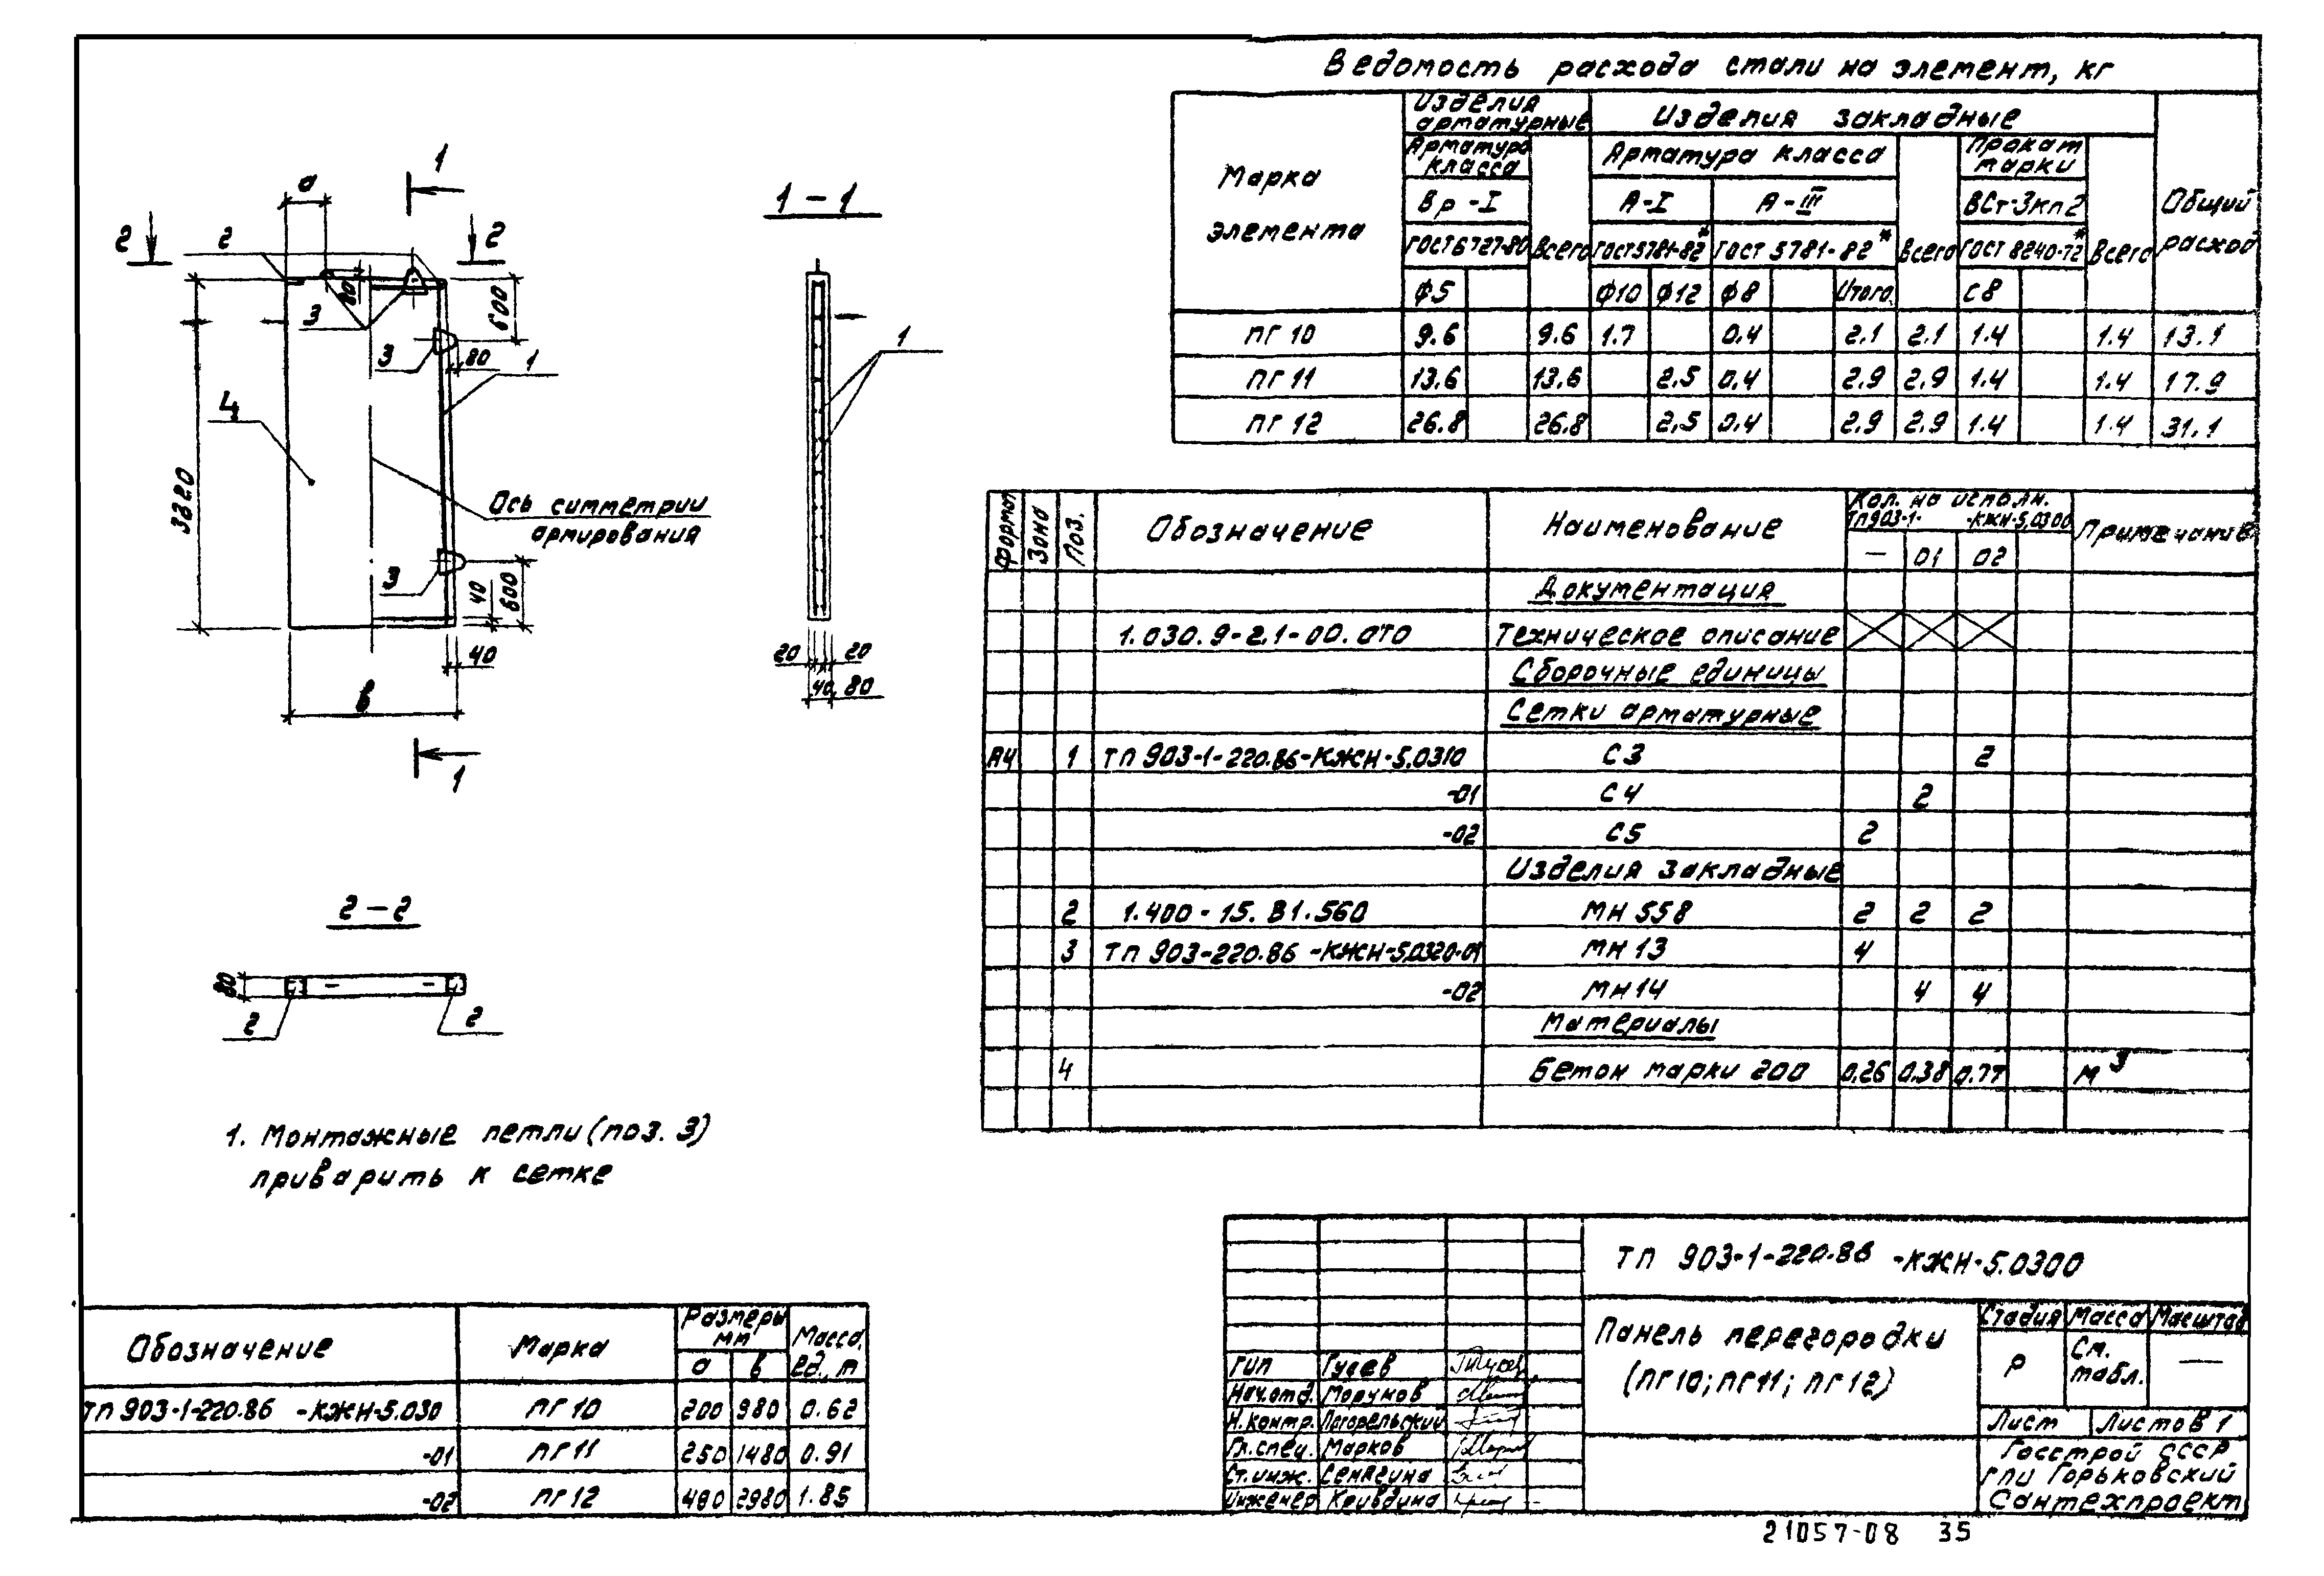 Ведомость расхода стали на элемент, кг
Марка элемента
Изделия арматурные
Изделия закладные
Общий расход
Арматура класса
Всего
Арматура класса
Всего
Прокат марки
Всего
Вр-I
А-I
А-III
ВСт3кп2
ГОСТ 6727-80
ГОСТ 5781-82*
ГОСТ 5781-82*
ГОСТ 8240-72*
ф5 ф10 ф12 ф8 Итого С8
ПГ 10 9.6 9.6 1.7 0.4 2.1 2.1 1.4 1.4 13.1
ПГ 11 13.6 13.6 2.5 0.4 2.9 2.9 1.4 1.4 17.9
ПГ 12 26.8 26.8 2.5 0.4 2.9 2.9 1.4 1.4 31.1
1
а
2 2 2
80
600
3
3
80
1
4
3220
Ось симметрии
армирования
3
40
600
40
в
1
1-1
1
20 20
40 80
2-2
80
2 2
1. Монтажные петли (поз. 3)
приварить к сетке
Формат Зона Поз. Обозначение Наименование Кол. на исполн. Примечание
ТП903-1- -КЖН-5.0300
— 01 02
Документация
1.030.9-2.1-00.0ТО Техническое описание
Сборочные единицы
Сетки арматурные
А4 1 ТП 903-1-220.86-КЖН-5.0310 С3 2
-01 С4 2
-02 С5 2
Изделия закладные
2 1.400-15.В1.560 МН 558 2 2 2
3 ТП 903-220.86 -КЖН-5.0320-01 МН 13 4
-02 МН14 4 4
Материалы
4 Бетон марки 200 0.26 0.38 0.77 м³
Обозначение Марка Размеры мм Масса, ед., т
а в
ТП 903-1-220.86 -КЖН-5.030 ПГ 10 200 980 0.62
-01 ПГ 11 250 1480 0.91
-02 ПГ 12 480 2980 1.85
ТП 903-1-220.86 -КЖН-5.0300
Панель перегородки
(ПГ10; ПГ11; ПГ12)
Стадия Масса Масштаб
Р См. табл. —
Лист Листов 1
Госстрой СССР
ГПИ Горьковский
Сантехпроект
ГИП Гусев
Нач.отд. Морунов
Н.контр. Погорельский
Гл.спец. Марков
Ст.инж. Семягина
Инженер Кривдина
21057-08 35